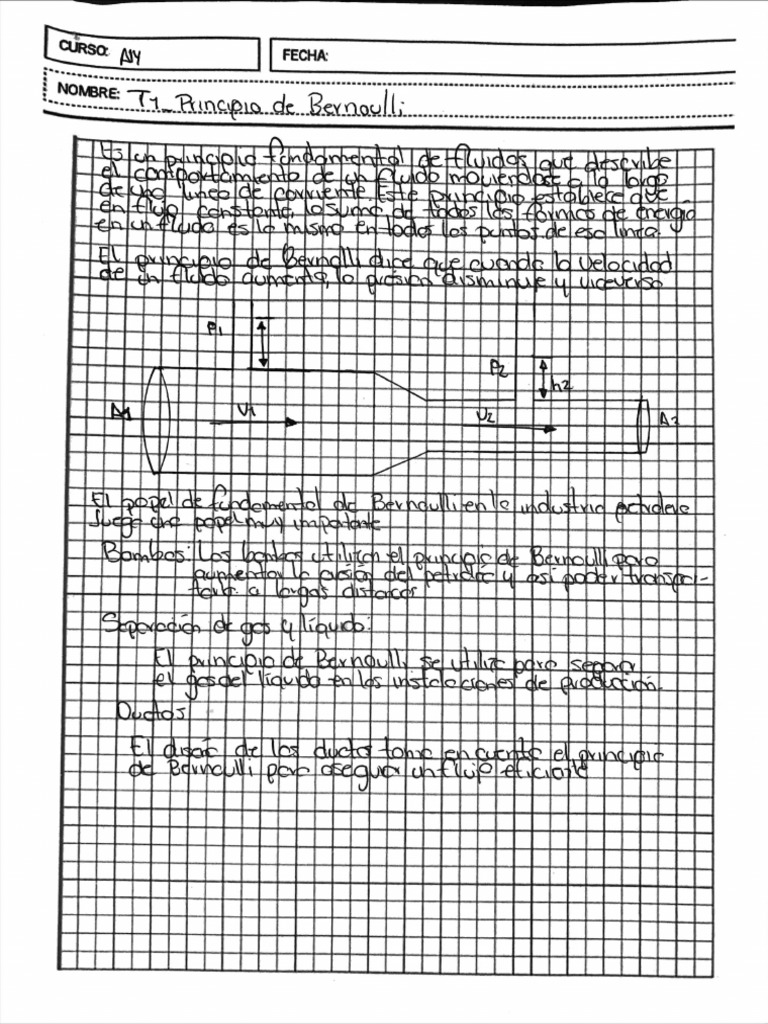 CURSO: A14
FECHA:
NOMBRE: T1_Principio de Bernoulli
Es un principio fundamental de fluidos que describe
el comportamiento de un fluido moviendose a lo largo
de una linea de corriente. Este principio establece que
en flujo constante, la suma de todas las formas de energia
en un fluido es la misma en todos los puntos de esa linea.
El principio de Bernolli dice que cuando la velocidad
de un fluido aumenta, la presion disminuye y viceversa
P1
P2
h2
A1
V1
V2
A2
El papel de fundamental de Bernoulli en la industria petrolera
Juega un papel muy importante
Bombas: Las bombas utilizan el principio de Bernoulli para
aumentar la presión del petroleo y asi poder transpor-
tarlo a largas distacias
Separación de gas y líquido:
El principio de Bernoulli se utiliza para separar
el gas del líquido en las instalaciones de producción.
Ductos
El diseño de los ductos toma en cuenta el principio
de Bernoulli para asegurar un flujo eficiente